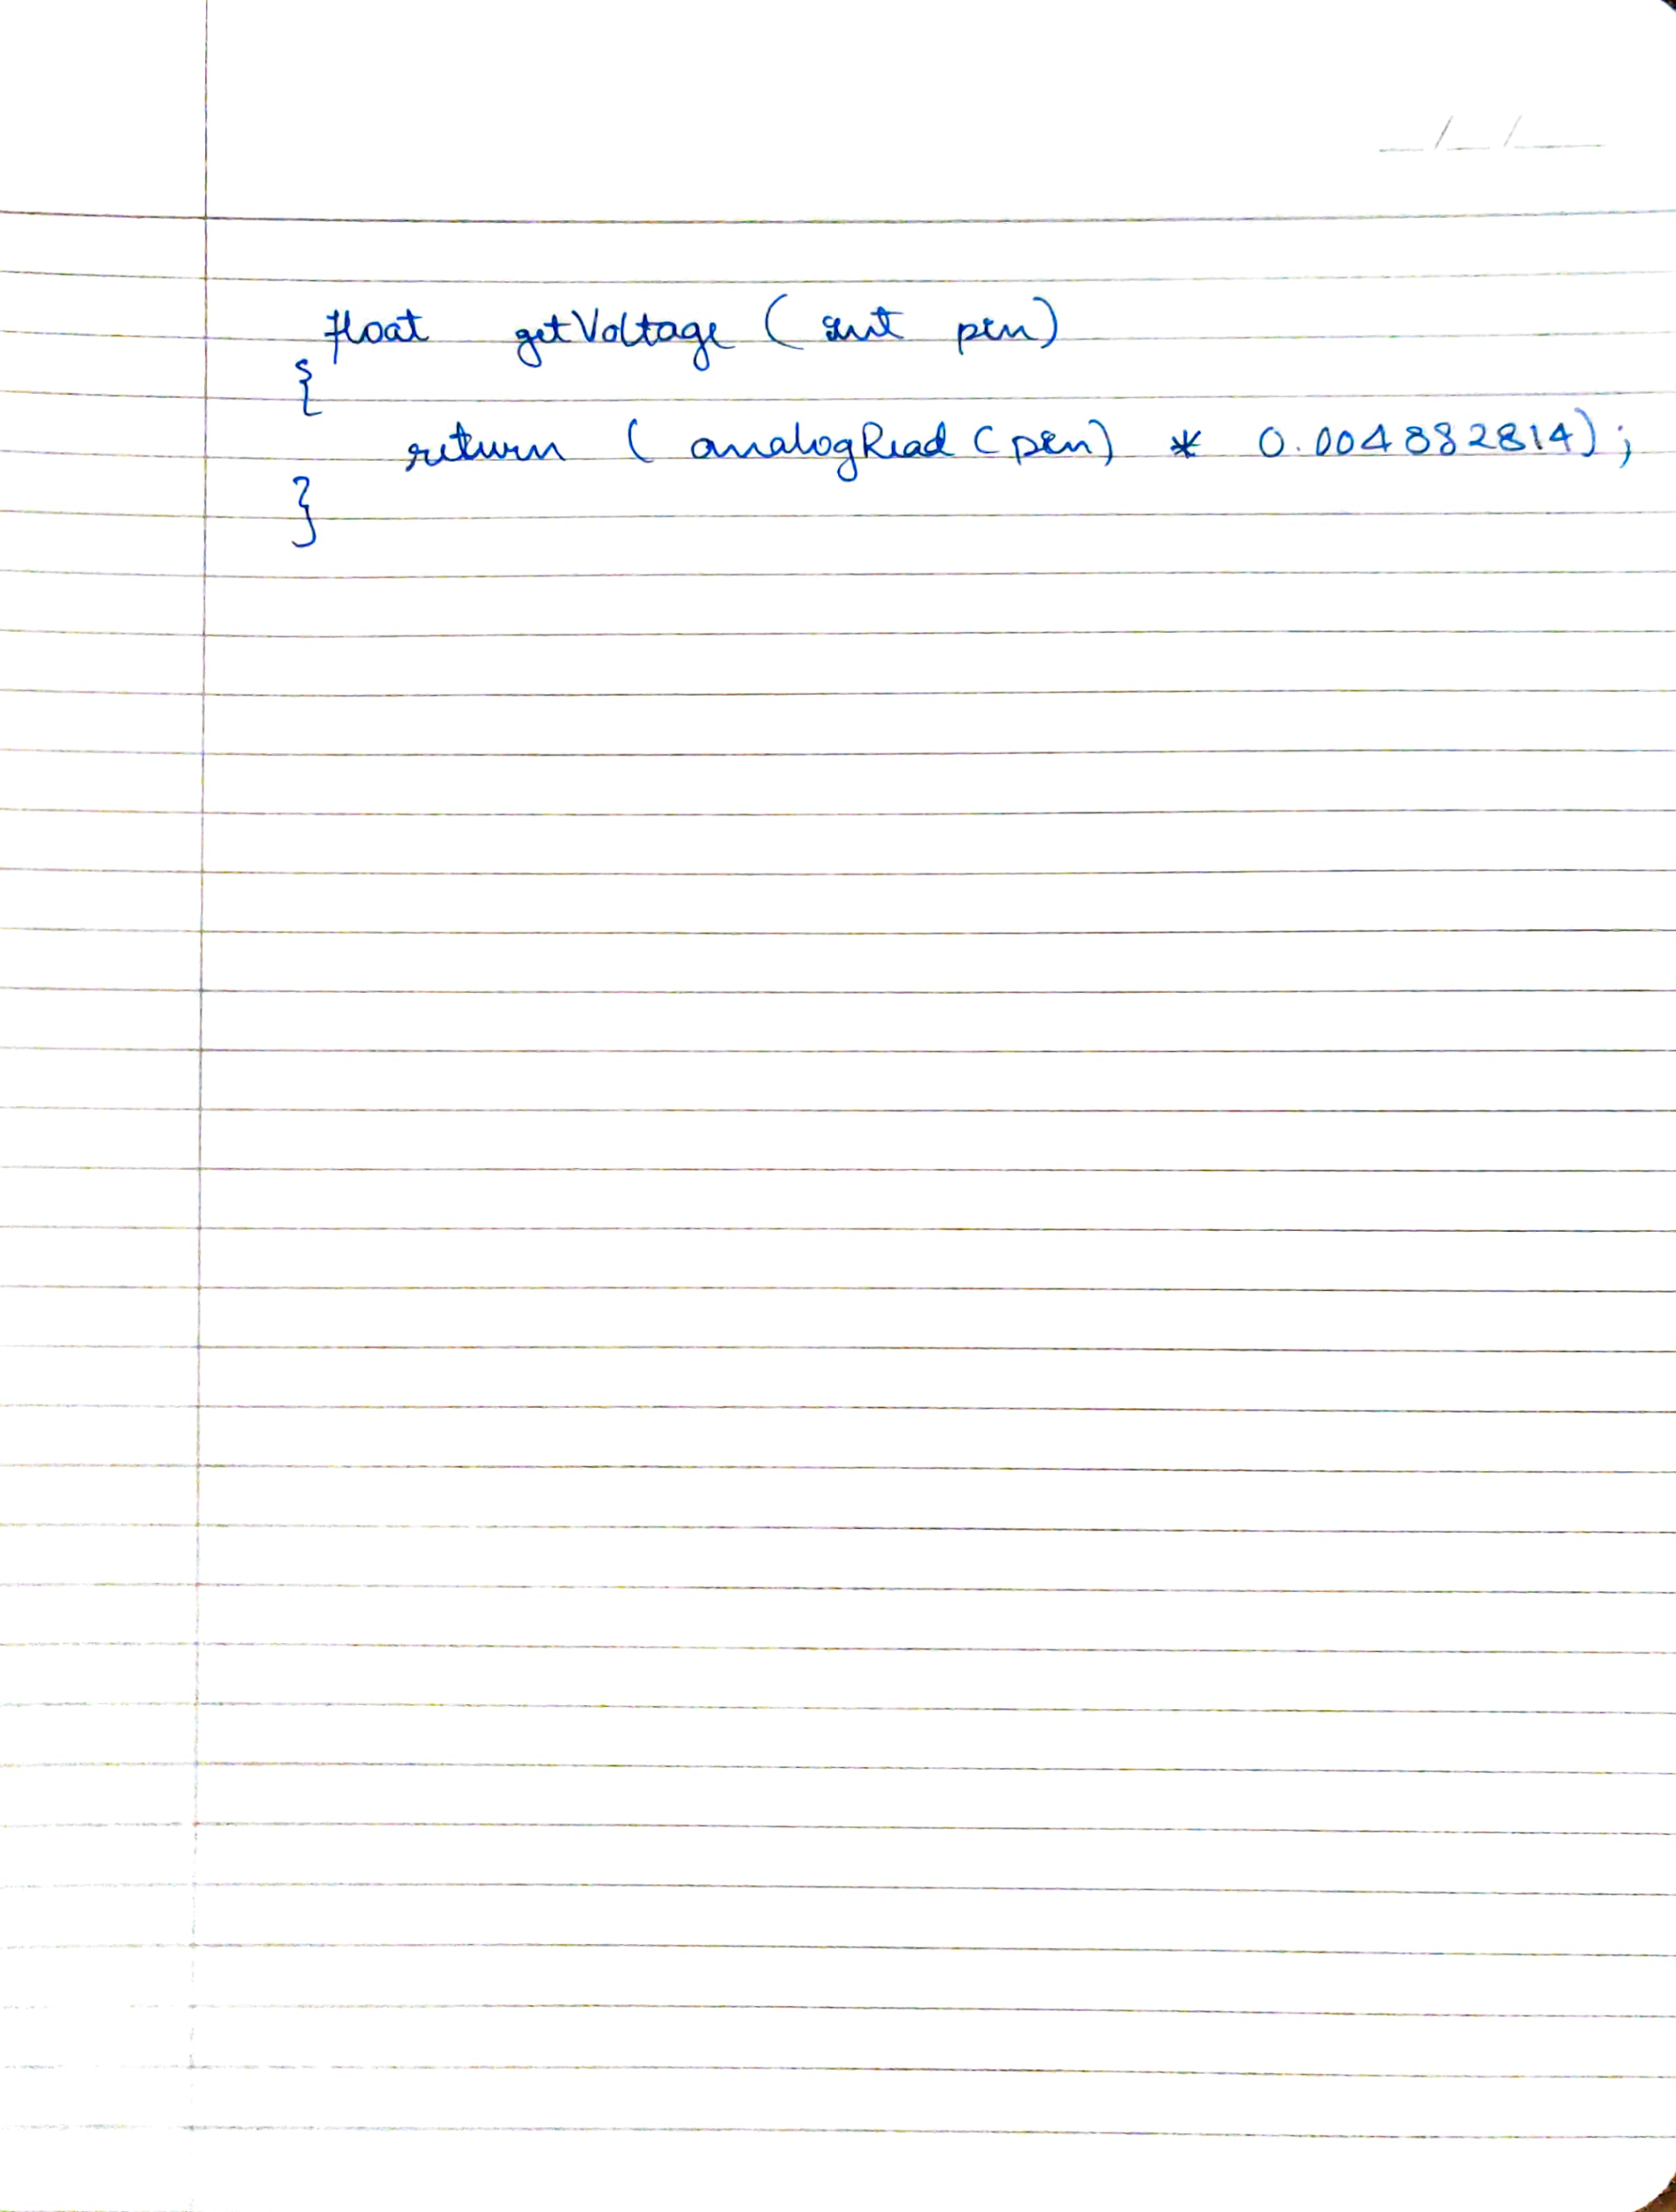 float getVoltage (int pin)
{
return (analogRead (pin) * 0.004882814);
}